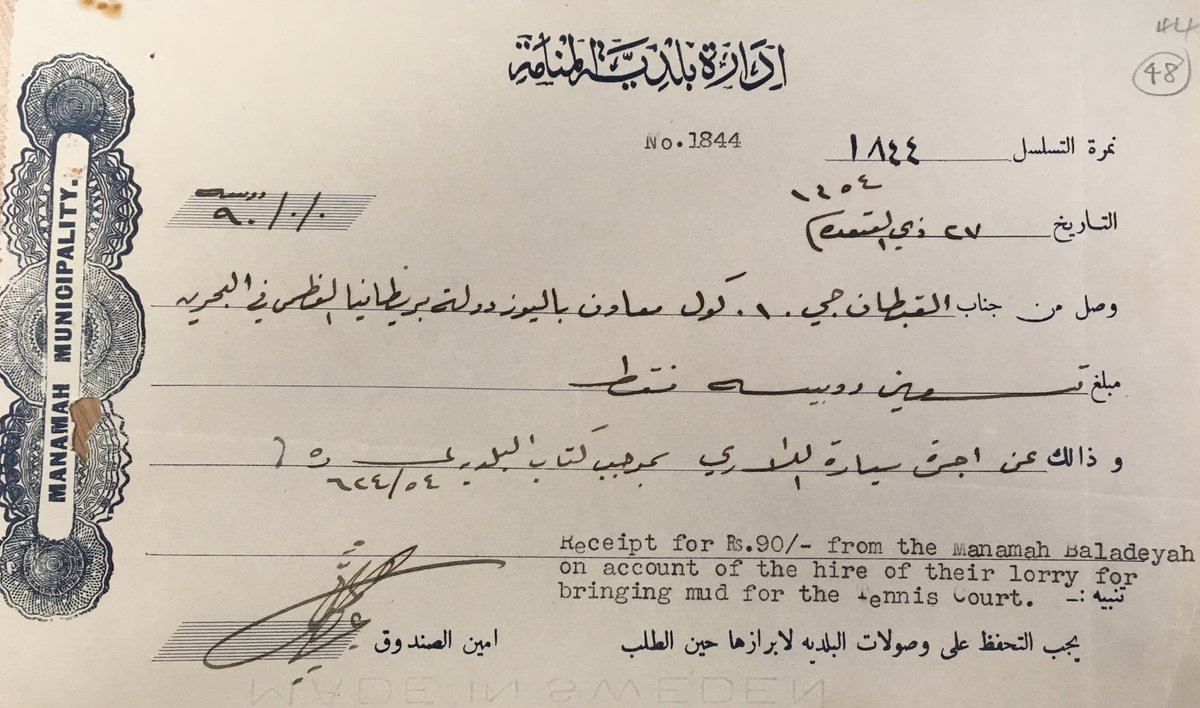 44
48
إدارة بلدية المنامة
No.1844
نمرة التسلسل ١٨٤٤
١٣٥٤
التاريخ ٢٧ ذي القعدة
روبيه
٩٠/٠/٠
وصل من جناب القبطان جي. ١. كول معاون باليوز دولة بريطانيا العظمى في البحرين
مبلغ تسعين روبيه فقط
وذالك عن اجرة سيارة اللاري بموجب كتاب البلديه
٦٢٤/٥٤
Receipt for Rs.90/- from the Manamah Baladeyah
on account of the hire of their lorry for
bringing mud for the Tennis Court.
تنبيه :ـ
يجب التحفظ على وصولات البلديه لابرازها حين الطلب
امين الصندوق
MANAMAH MUNICIPALITY.
MADE IN SWEDEN